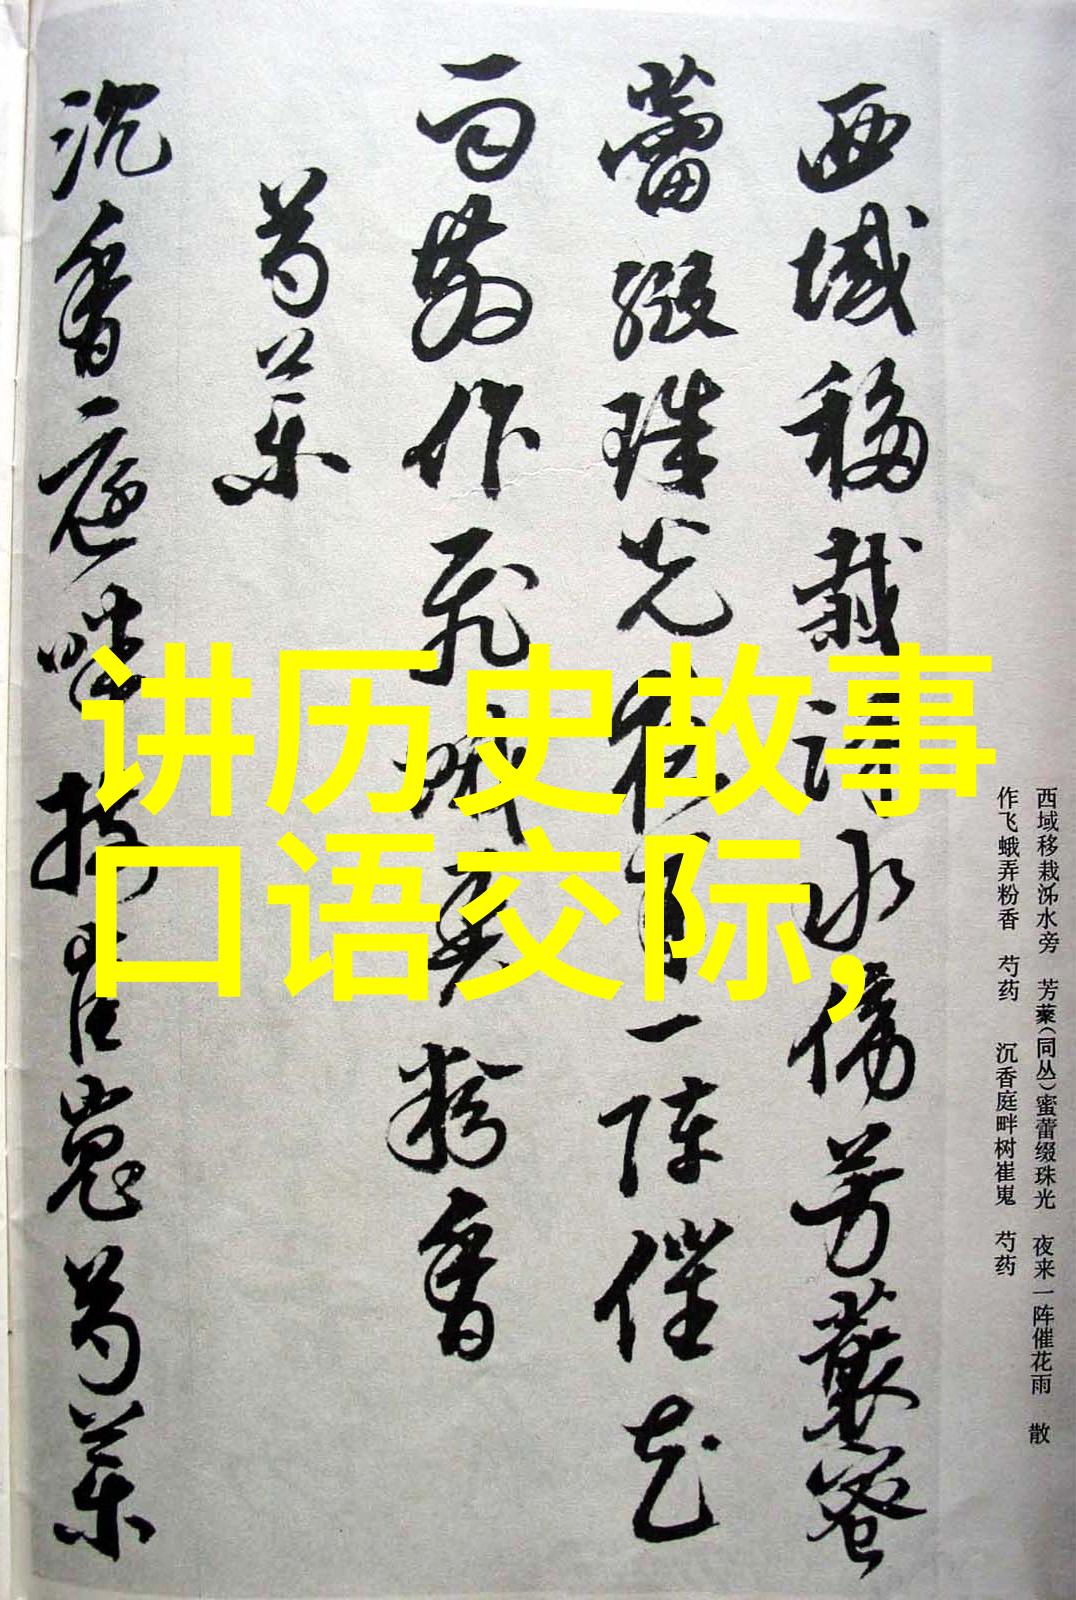 西域移栽沵水傍芳藂蜜
蕾缀珠光夜来一阵催花
雨散作飞蛾弄粉香
芍药
沉香庭畔树崔嵬芍药
讲历史故事
口语交际,
西域移栽沵水旁　芳藂(同丛)蜜蕾缀珠光　夜来一阵催花雨　散
作飞蛾弄粉香　芍药　沉香庭畔树崔嵬　芍药